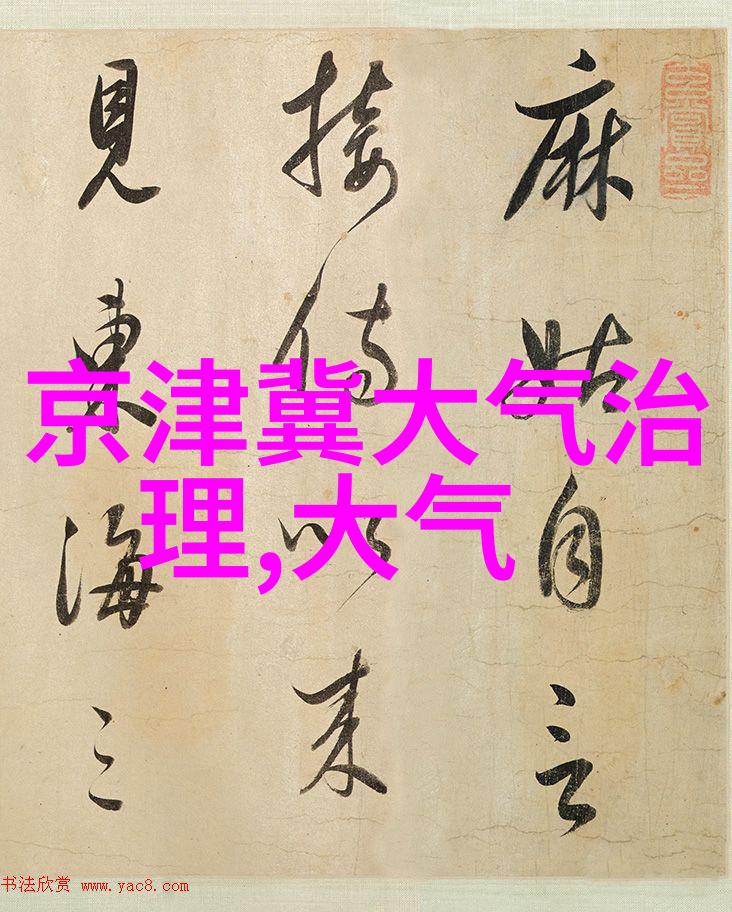 麻姑自言
接侍以来
見東海三
京津冀大气治
理,大气
书法欣赏 www.yac8.com